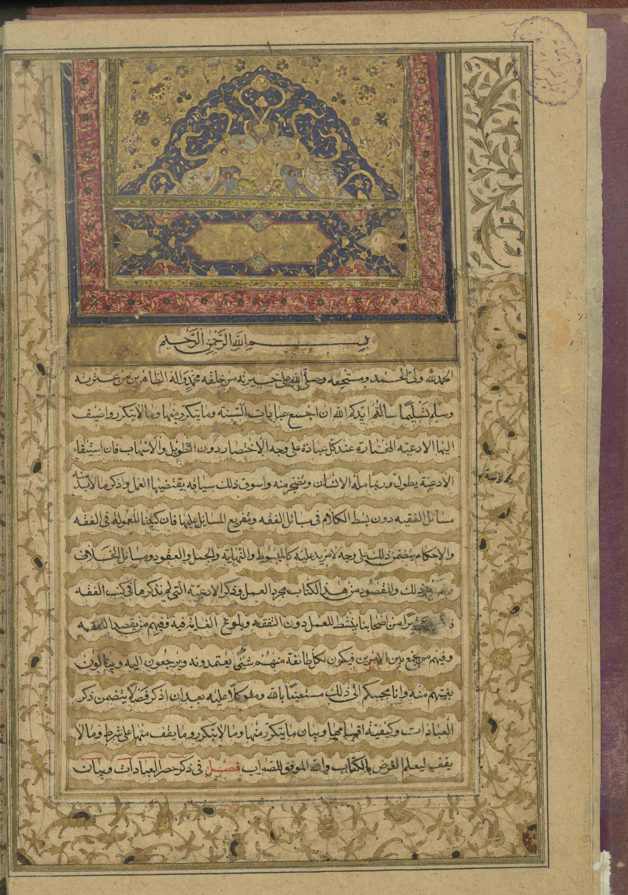 بسم الله الرحمن الرحیم
الحمد لله ولی الحمد ومستحقه وصلی الله علی خیرته من خلقه محمد وآله الطاهرین من عترته
وسلم تسلیما سالتم ایدکم الله ان اجمع عبادات السنة وما یتکرر منها وما لا یتکرر واضیف
الیها الادعیة المختارة عند کل عبادة علی وجه الاختصار دون التطویل والاسهاب فان استیفاء
الادعیة یطول وربما مله الانسان وتضجر منه واسوق ذلک سیاقة یقتضیها العمل واذکر ما لابد
مسائل الفقیه دون بسط الکلام فی مسائل الفقه وتفریع المسائل علیها فان کتبنا المعمولة فی الفقه
والاحکام یتضمن ذلک علی وجه لا مزید علیه کالمبسوط والنهایة والجمل والعقود ومسائل الخلاف
ذلک والمقصود من هذا الکتاب مجرد العمل وذکر الادعیة التی لم نذکرها فی کتب الفقه
من اصحابنا ینشط للعمل دون التفقه وبلوغ الغایة فیه وفیهم من یقصد التفقه
وفیهم من یجمع بین الامرین فیکون لکل طائفة منهم شیء یعتمدونه ویرجعون الیه وینالون
بغیتهم منه وانا مجیبکم الی ذلک مستعینا بالله ومتوکلا علیه بعد ان اذکر فصلا یتضمن ذکر
العبادات وکیفیة اقسامها وبیان ما یتکرر منها وما لا یتکرر وما یقف منها علی شرط وما لا
یقف لیعلم الغرض بالکتاب والله الموفق للصواب فصل فی ذکر حصر العبادات وبیان